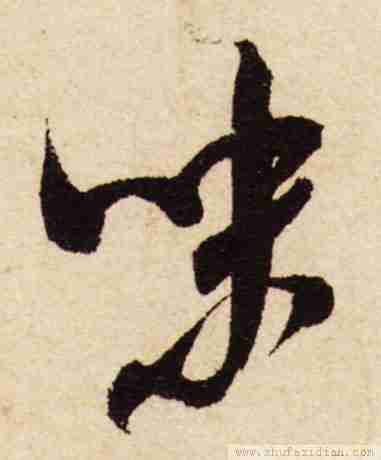 味
www.shufazidian.com